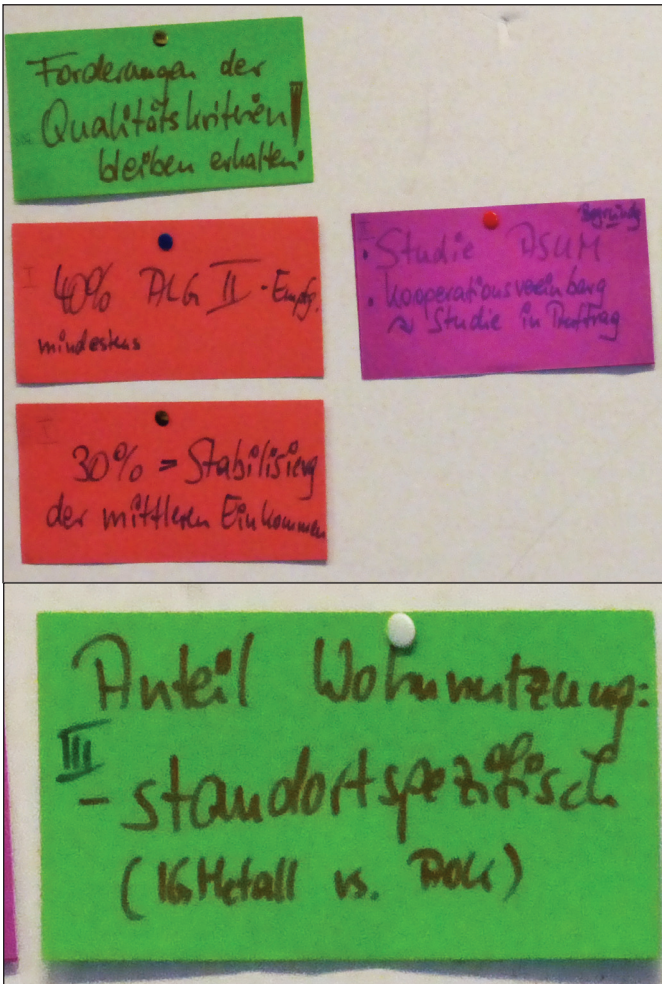 Forderungen der
Qualitätskriterien!
bleiben erhalten
I
40% ALG II - Empfg.
mindestens
I
30% = Stabilisierg
der mittleren Einkommen
I Begründg
· Studie ASUM
· Kooperationsvereinbarg
Studie in Auftrag
Anteil Wohnnutzung:
III
- standortspezifisch
(IG Metall vs. AOK)